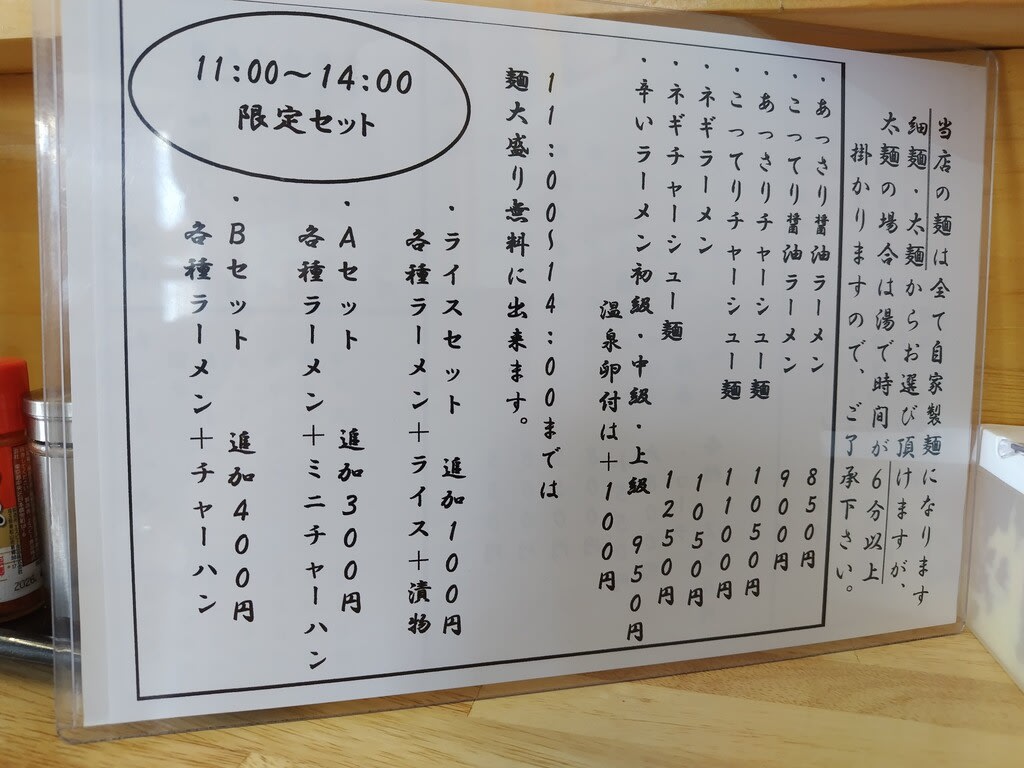 当店の麺は全て自家製麺になります
細麺・太麺からお選び頂けますが、
太麺の場合は湯で時間が６分以上
掛かりますので、ご了承下さい。
・あっさり醤油ラーメン　８５０円
・こってり醤油ラーメン　９００円
・あっさりチャーシュー麺　１０５０円
・こってりチャーシュー麺　１１００円
・ネギラーメン　１０５０円
・ネギチャーシュー麺　１２５０円
・辛いラーメン初級・中級・上級　９５０円
温泉卵付は＋１００円
１１：００～１４：００までは
麺大盛り無料に出来ます。
・ライスセット　追加１００円
各種ラーメン＋ライス＋漬物
・Ａセット　追加３００円
各種ラーメン＋ミニチャーハン
・Ｂセット　追加４００円
各種ラーメン＋チャーハン
11:00～14:00
限定セット